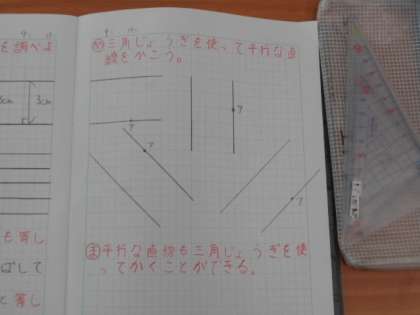 を調べよ
3cm
3cm
も等し
ばして
と等し
め三角じょうぎを使って平行な直
線をかこう。
ア
ア
ア
ア
ま平行な直線も三角じょうぎを使
ってかくことができる。